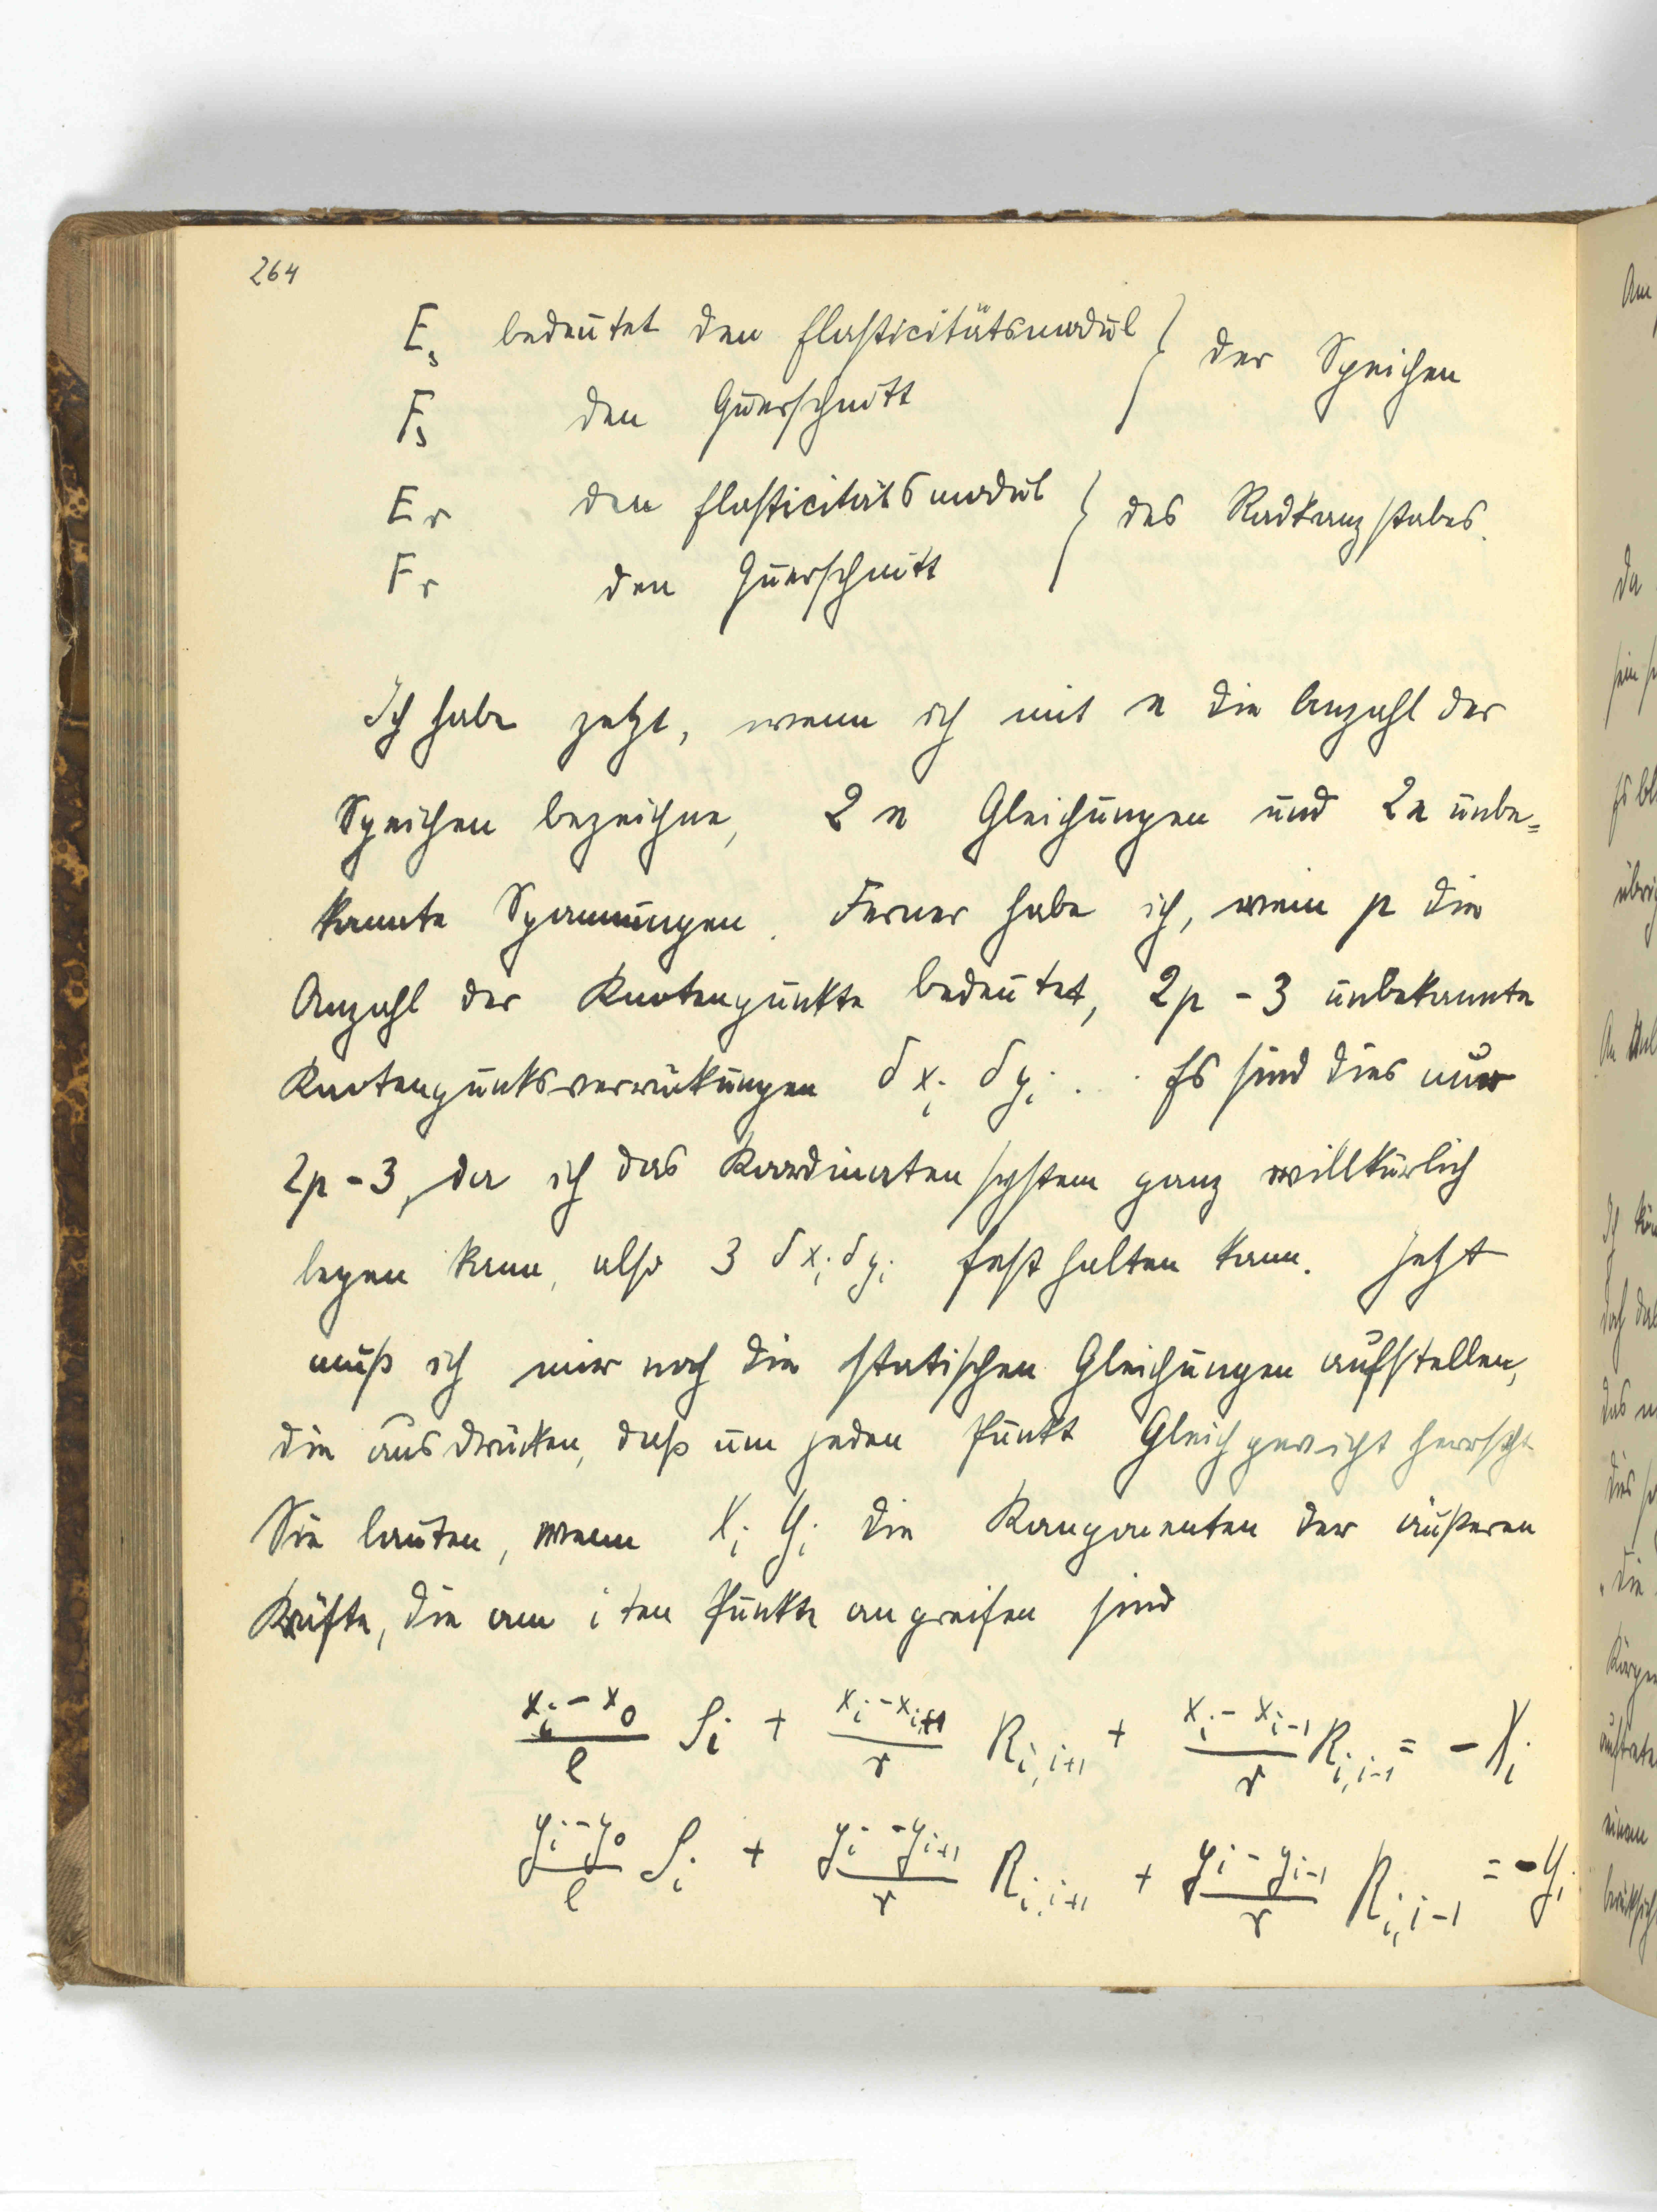 264
E_s bedeutet den Elasticitätsmodul } der Speichen
F_s den Querschnitt
E_r den Elasticitätsmodul } des Radkranzstabes.
F_r den Querschnitt
Ich habe jetzt, wenn ich mit n die Anzahl der
Speichen bezeichne, 2n Gleichungen und 2n unbe=
kannte Spannungen. Ferner habe ich, wenn p die
Anzahl der Knotenpunkte bedeutet, 2p - 3 unbekannte
Knotenpunktsverrückungen δx_i δy_i ... Es sind dies nur
2p - 3, da ich das Koordinatensystem ganz willkürlich
legen kann, also 3 δx_i δy_i festhalten kann. Jetzt
muß ich mir noch die statischen Gleichungen aufstellen,
die ausdrücken, daß um jeden Punkt Gleichgewicht herrscht
Sie lauten, wenn X_i Y_i die Komponenten der äußeren
Kräfte, die am iten Punkte angreifen sind
(x_i - x_0)/l S_i + (x_i - x_{i+1})/r R_{i,i+1} + (x_i - x_{i-1})/r R_{i,i-1} = - X_i
(y_i - y_0)/l S_i + (y_i - y_{i+1})/r R_{i,i+1} + (y_i - y_{i-1})/r R_{i,i-1} = - Y_i